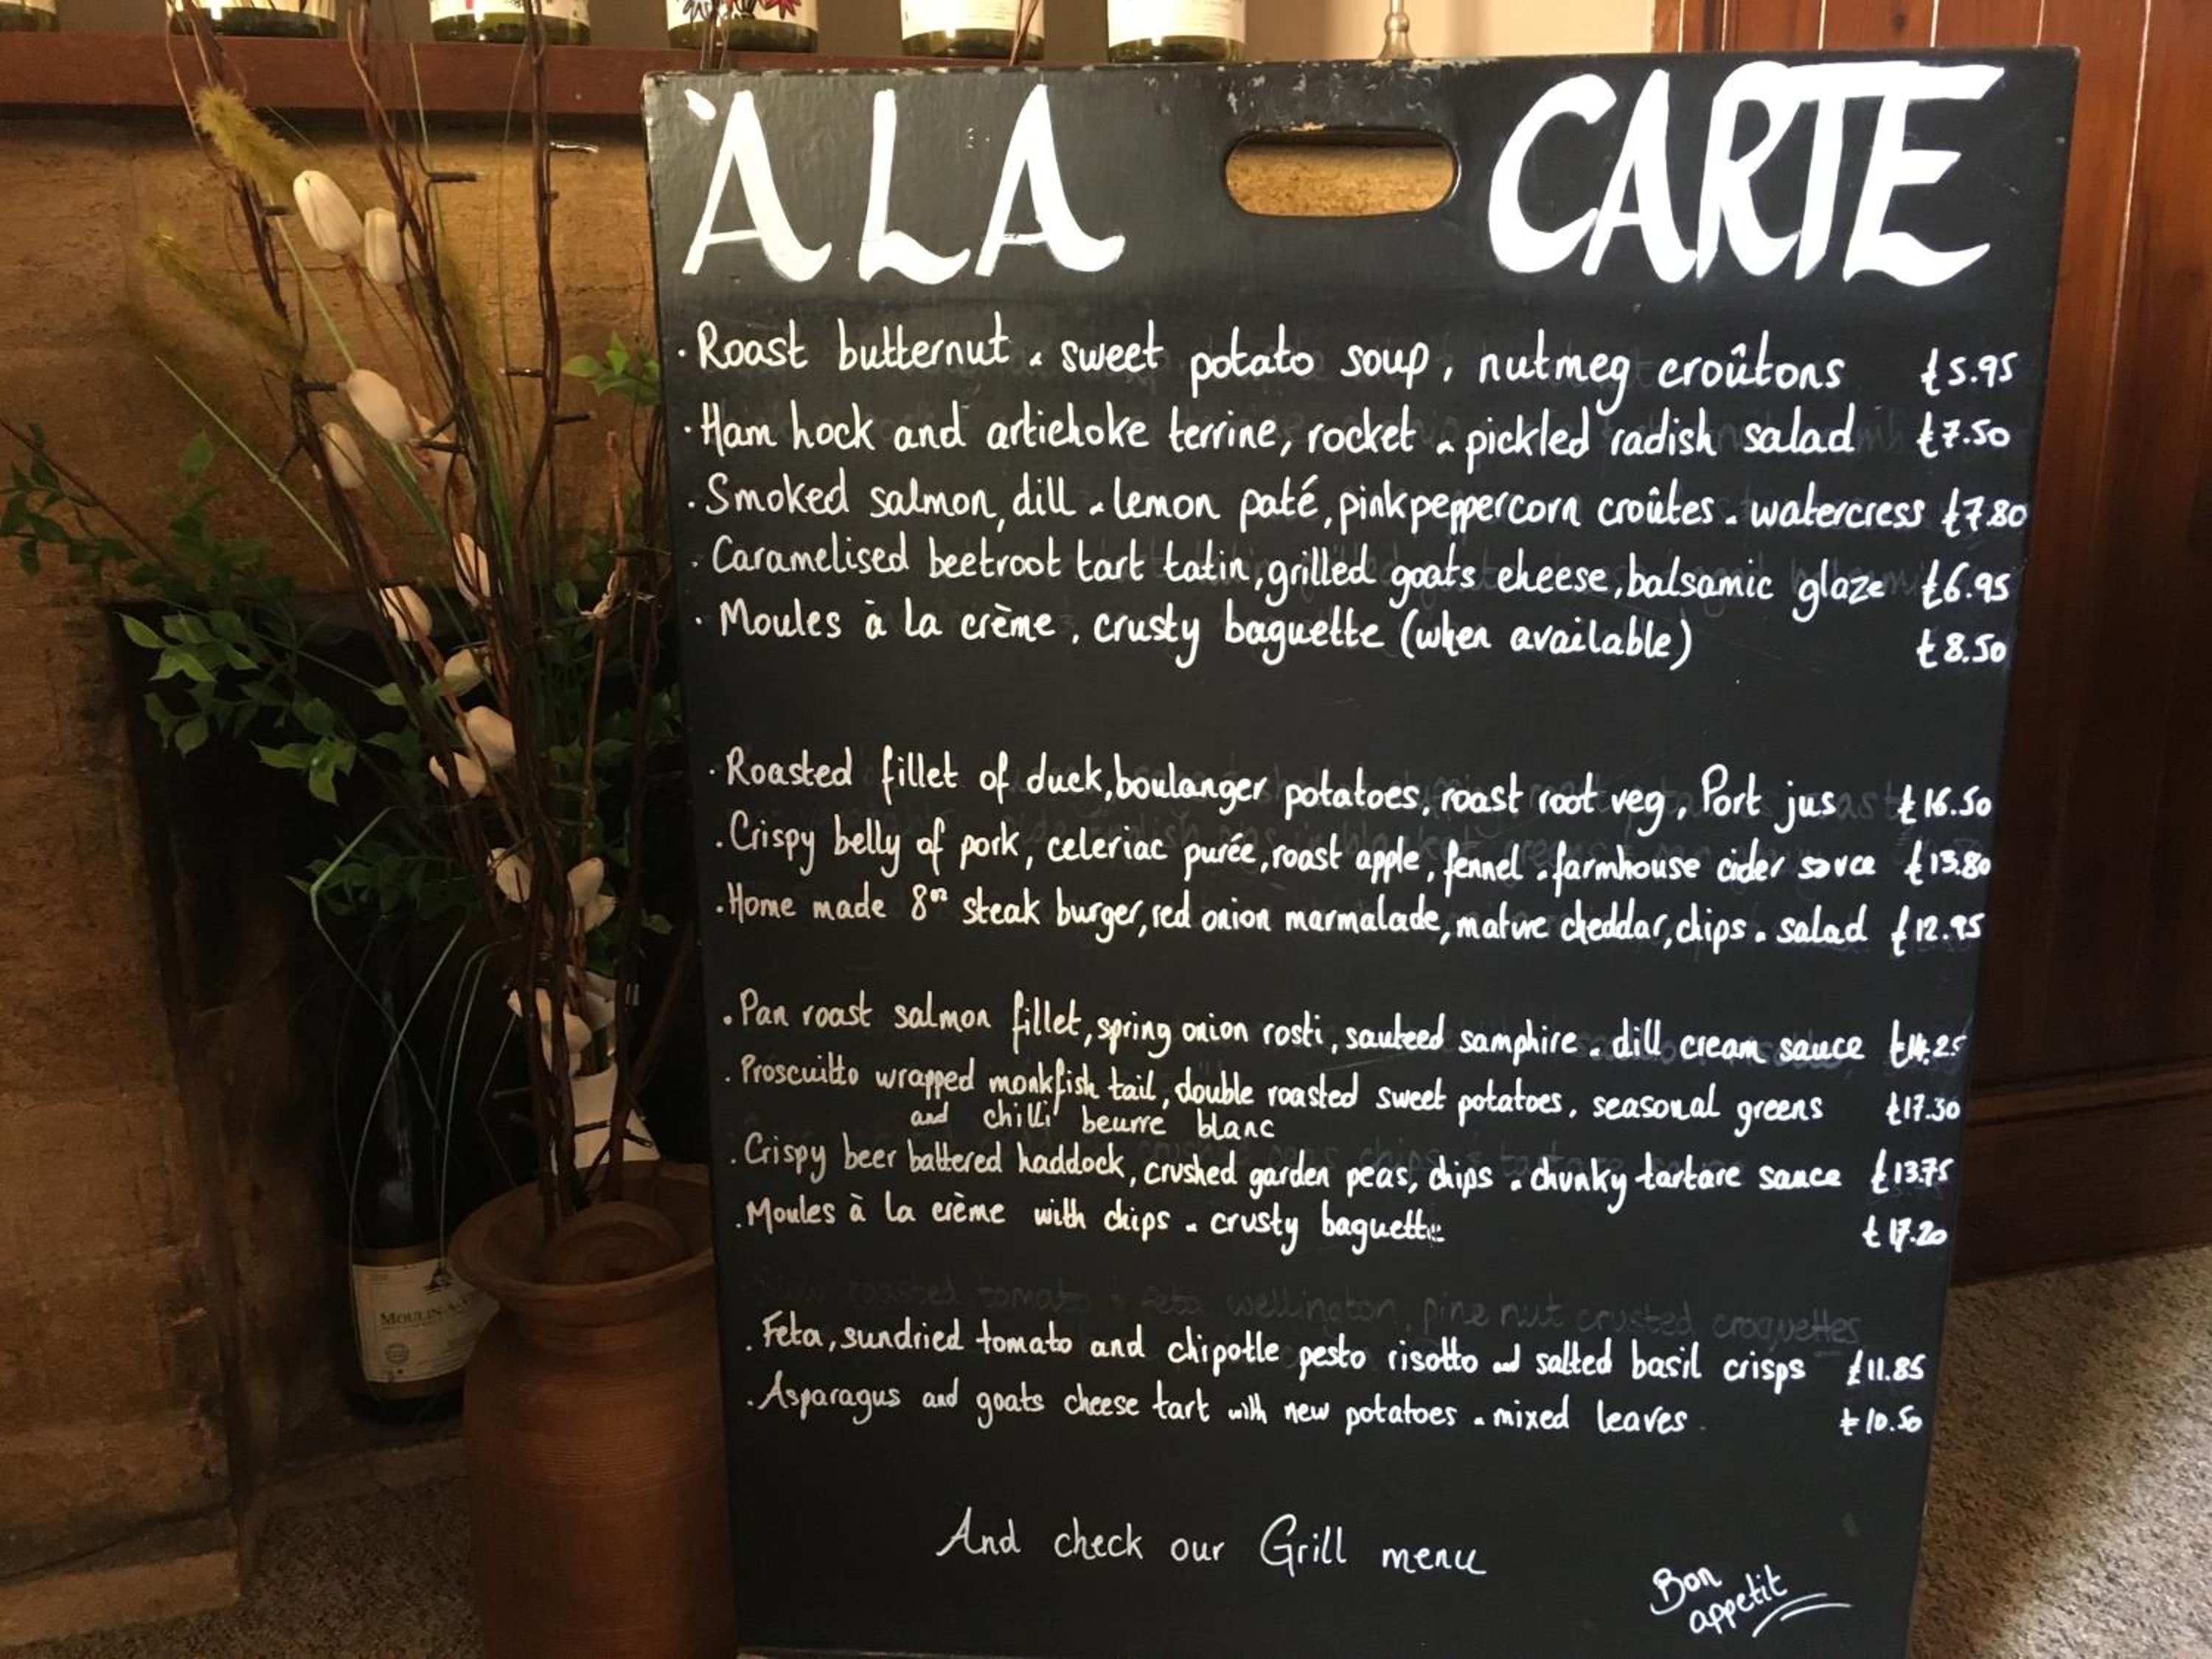 À LA CARTE
· Roast butternut & sweet potato soup, nutmeg croûtons £5.95
· Ham hock and artichoke terrine, rocket & pickled radish salad £7.50
· Smoked salmon, dill & lemon paté, pink peppercorn croûtes & watercress £7.80
· Caramelised beetroot tart tatin, grilled goats cheese, balsamic glaze £6.95
· Moules à la crème, crusty baguette (when available) £8.50
· Roasted fillet of duck, boulanger potatoes, roast root veg, Port jus £16.50
· Crispy belly of pork, celeriac purée, roast apple, fennel & farmhouse cider sauce £13.80
· Home made 8oz steak burger, red onion marmalade, mature cheddar, chips & salad £12.95
· Pan roast salmon fillet, spring onion rosti, sauteed samphire & dill cream sauce £14.25
· Proscuitto wrapped monkfish tail, double roasted sweet potatoes, seasonal greens £17.30
and chilli beurre blanc
· Crispy beer battered haddock, crushed garden peas, chips & chunky tartare sauce £13.75
· Moules à la crème with chips & crusty baguette £17.20
roasted tomato & feta wellington, pine nut crusted croquettes
· Feta, sundried tomato and chipotle pesto risotto and salted basil crisps £11.85
· Asparagus and goats cheese tart with new potatoes & mixed leaves £10.50
And check our Grill menu
Bon
appetit